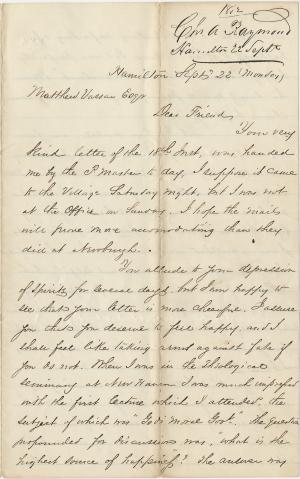 1862
Cor. A Raymond
Hamilton 22 Sept.
Hamilton Sept 22 (Monday)
Matthew Vassar Esqr
Dear Friend,
Your very
kind letter of the 18th Inst, was handed
me by the P. Master to day, I suppose it came
to the Village Saturday night, but I was not
at the Office on Sunday. I hope the mails
will prove more accomodating than they
did at Newburgh.
You allude to your depression
of Spirits for several days, but I am happy to
see that your letter is more cheerful. I assure
you that you deserve to feel happy, and I
shall feel like taking arms against Fate if
you do not. When I was in the Theological
Seminary at New Haven I was much impressed
with the first lecture which I attended, the
subject of which was "God's moral Gov." The question
propounded for discussion was, what is the
highest source of happiness? The answer was